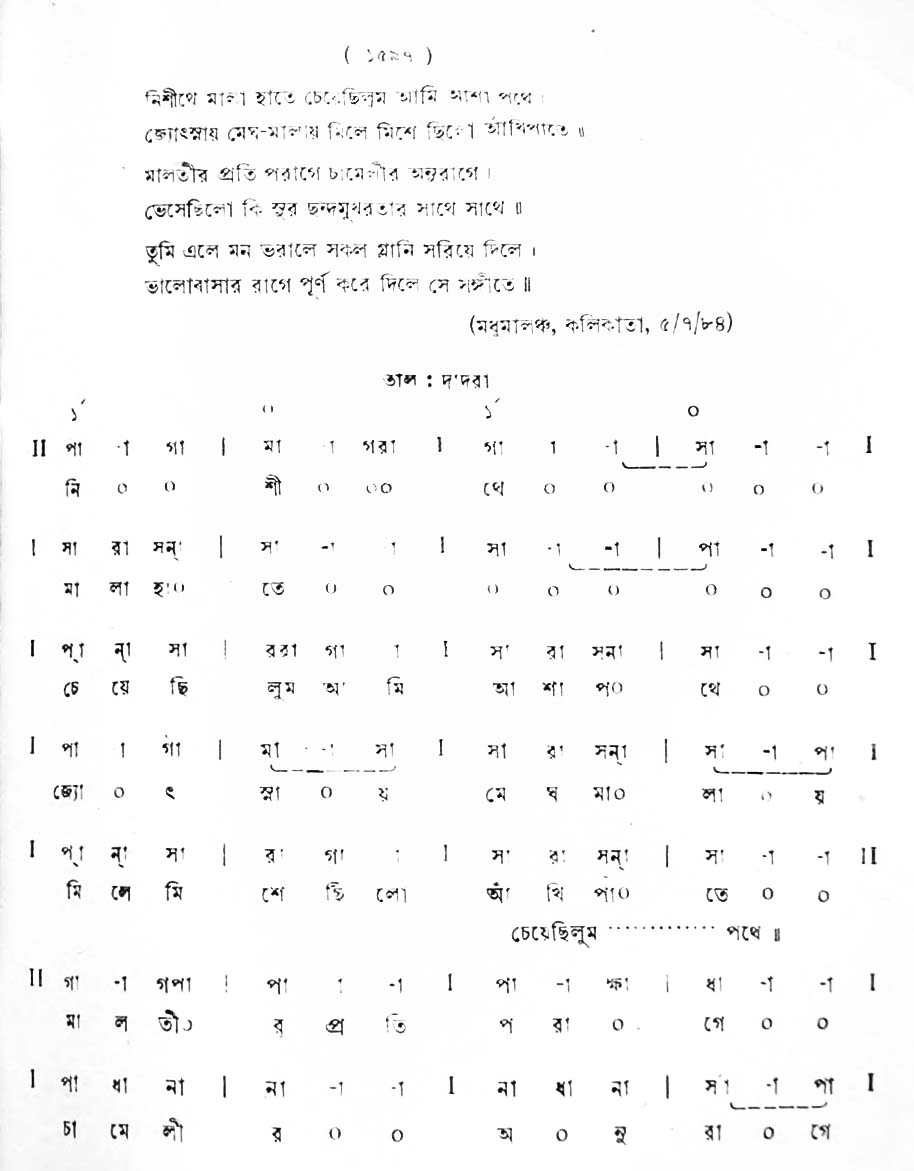 ( ১৫৯৭ )
নিশীথে মালা হাতে চেয়েছিলুম আমি আশা পথে ।
জ্যোৎস্নায় মেঘ-মালায় মিলে মিশে ছিলো আঁখিপাতে ॥
মালতীর প্রতি পরাগে চামেলীর অনুরাগে ।
ভেসেছিলো কি সুর ছন্দমুখরতার সাথে সাথে ॥
তুমি এলে মন ভরালে সকল গ্লানি সরিয়ে দিলে ।
ভালোবাসার রাগে পূর্ণ করে দিলে সে সঙ্গীতে ॥
(মধুমালঞ্চ, কলিকাতা, ৫/৭/৮৪)
তাল : দাদরা
১´ ০ ১´ ০
II পা -া গা | মা -া গরা I গা া -া | সা -া -া I
নি ০ ০ শী ০ ০০ থে ০ ০ ০ ০ ০
I সা রা সন্া | সা -া া I সা -া -া | পা -া -া I
মা লা হা০ তে ০ ০ ০ ০ ০ ০ ০ ০
I প্া ন্া সা | ররা গা া I সা রা সনা | সা -া -া I
চে য়ে ছি লুম আ মি আ শা প০ থে ০ ০
I পা া গা | মা -া সা I সা রা সন্া | সা -া পা I
জ্যো ০ ৎ স্না ০ য় মে ঘ মা০ লা ০ য়
I প্া ন্া সা | রা গা া I সা রা সন্া | সা -া -া II
মি লে মি শে ছি লো আঁ খি পা০ তে ০ ০
চেয়েছিলুম ············ পথে ॥
II গা -া গপা | পা া -া I পা -া ক্ষা | ধা -া -া I
মা ল তী০ র্ প্র তি প রা ০ গে ০ ০
I পা ধা না | না -া -া I না ধা না | সা -া পা I
চা মে লী র ০ ০ অ ০ নু রা ০ গে